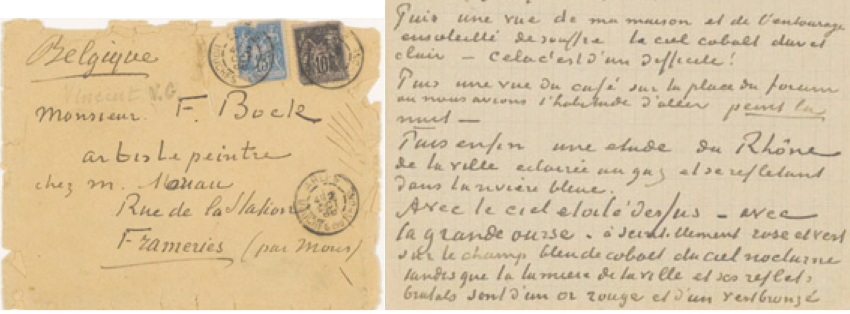 Belgique
Vincent V.G.
25
10
Monsieur F. Bock
artiste peintre
chez m.
Rue de la Station
Frameries (par Mons)
ARLES
Puis une vue de ma maison et de l'entourage
ensoleillé de souffre le ciel cobalt dur et
clair – cela c'est d'un difficile!
Puis une vue du café sur la place du forum
ou nous avions l'habitude d'aller peint la
nuit –
Puis enfin une etude du Rhône
de la ville eclairée au gaz et se reflétant
dans la rivière bleue.
Avec le ciel etoilé dessus – avec
la grande ourse – à scintillement rose et vert
sur le champ bleu de cobalt du ciel nocturne
tandis que la lumiere de la ville et ses reflets
brutals sont d'un or rouge et d'un vert bronzé